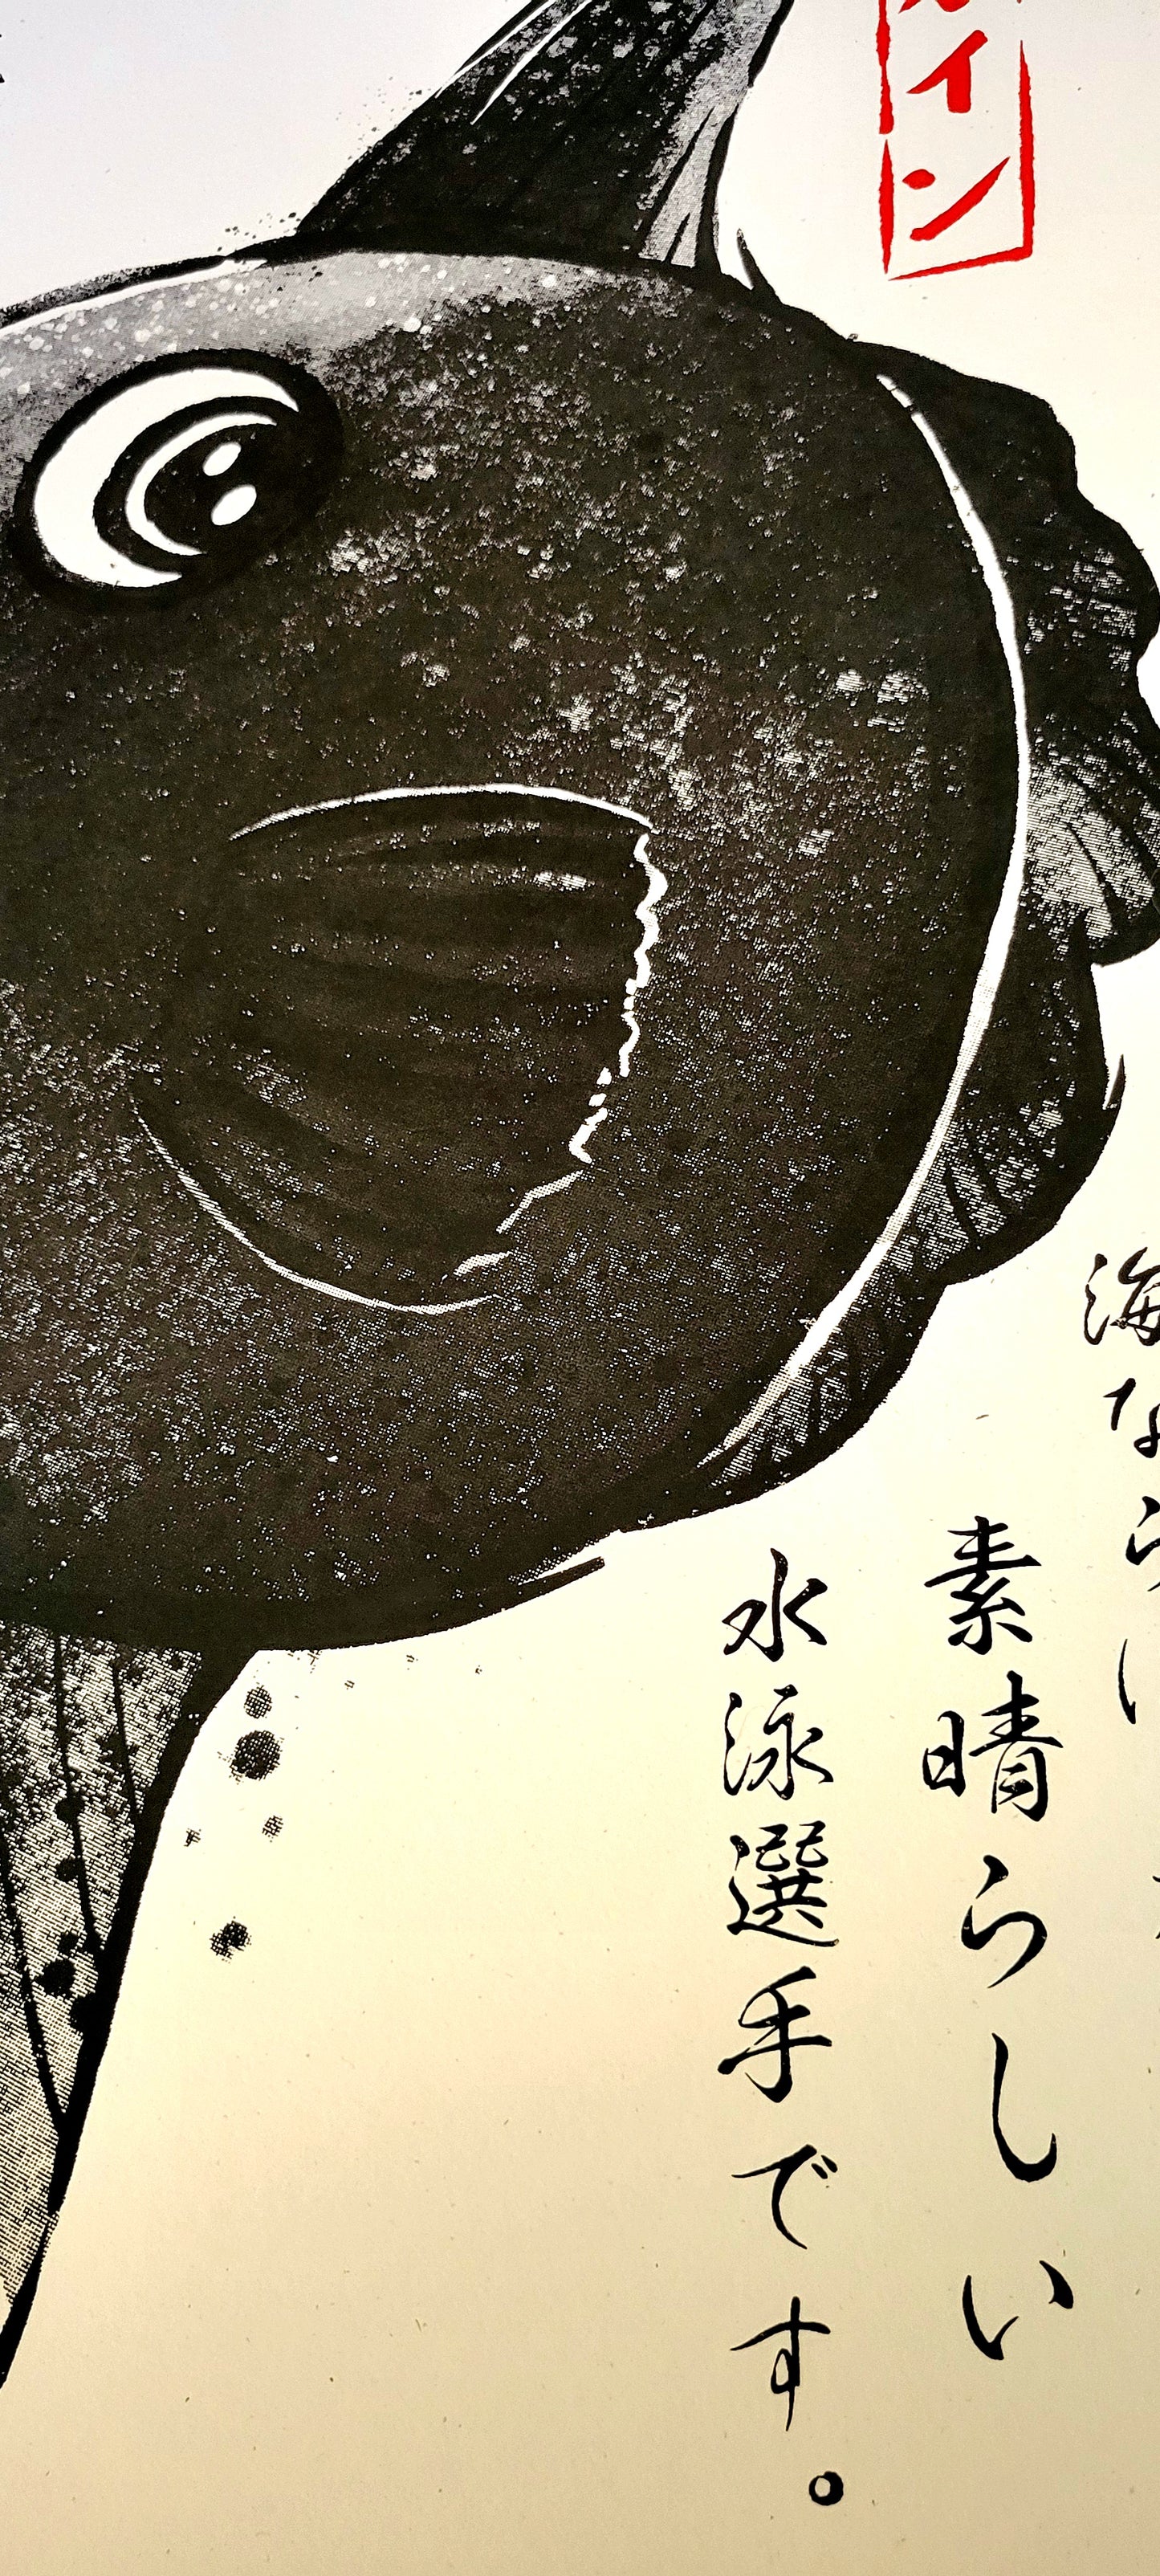 イン
海なら
素晴らしい
水泳選手です。